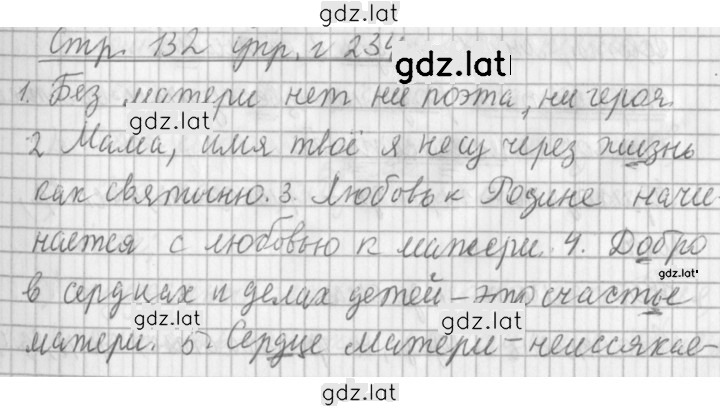 gdz.lat
Стр. 132 упр. г 234
gdz.lat
1. Без матери нет ни поэта, ни героя.
gdz.lat
2 Мама, имя твоё я несу через жизнь
как святыню. 3. Любовь к Родине начи-
нается с любовью к матери. 4. Добро
gdz.lat
в сердцах и делах детей – это счастье
gdz.lat gdz.lat
матери. 5. Сердце матери – неиссякае-
gdz.lat